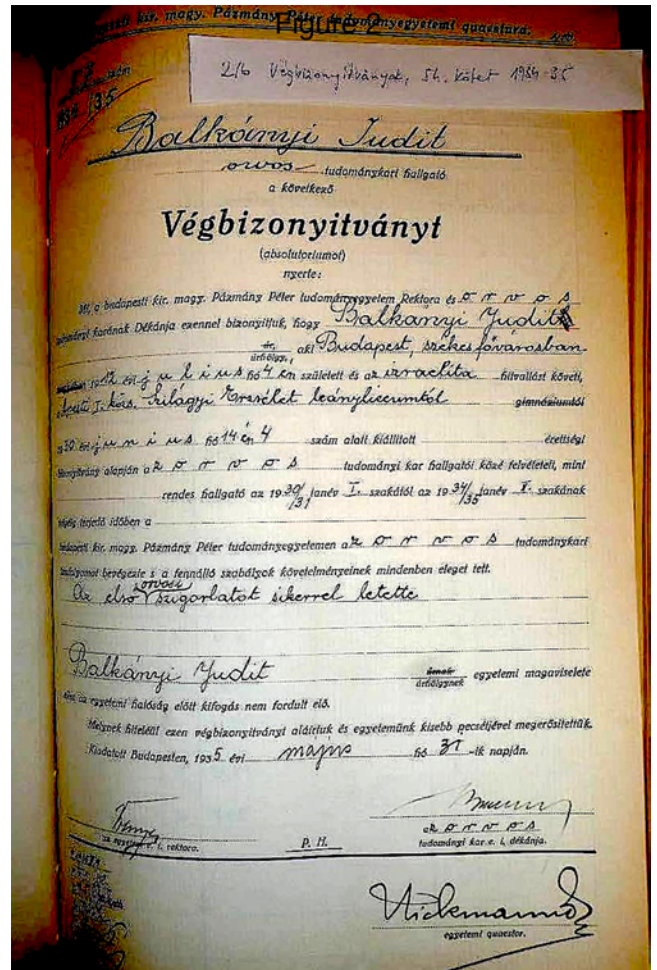 kir. magy. Pázmány Péter tudományegyetemi quaestura.
Figure 2
2/b Végbizonyítványok, 54. kötet 1934-35
Balkányi Judit
orvos tudománykari hallgató
a következő
Végbizonyitványt
(absolutoriumot)
nyerte:
Mi, a budapesti kir. magy. Pázmány Péter tudományegyetem Rektora és orvos
karának Dékánja ezennel bizonyitjuk, hogy Balkányi Judit
úr, úrhölgy, aki Budapest, székesfővárosban
1912 évi julius hó 4 én született és az izraelita hitvallást követi,
I. ker. Szilágyi Erzsébet leányliceumtól gimnáziumtól
30 évi junius hó 14 én 4 szám alatt kiállított érettségi
alapján az orvos tudományi kar hallgatói közé felvétetett, mint
rendes hallgató az 1930/31 tanév I. szakától az 1934/35 tanév II. szakának
végéig terjedő időben a
budapesti kir. magy. Pázmány Péter tudományegyetemen az orvos tudománykari
tanfolyamot bevégezte s a fennálló szabályok követelményeinek mindenben eleget tett.
Az első orvosi szigorlatot sikerrel letette
Balkányi Judit úrnak úrhölgynek egyetemi magaviselete
az egyetemi hatóság előtt kifogás nem fordult elő.
Melynek hiteléül ezen végbizonyitványt aláirtuk és egyetemünk kisebb pecsétjével megerősitettük.
Kiadatott Budapesten, 1935 évi május hó 31-ik napján.
az egyetem e. i. rektora. P. H. az orvos
tudományi kar e. i. dékánja.
egyetemi quaestor.